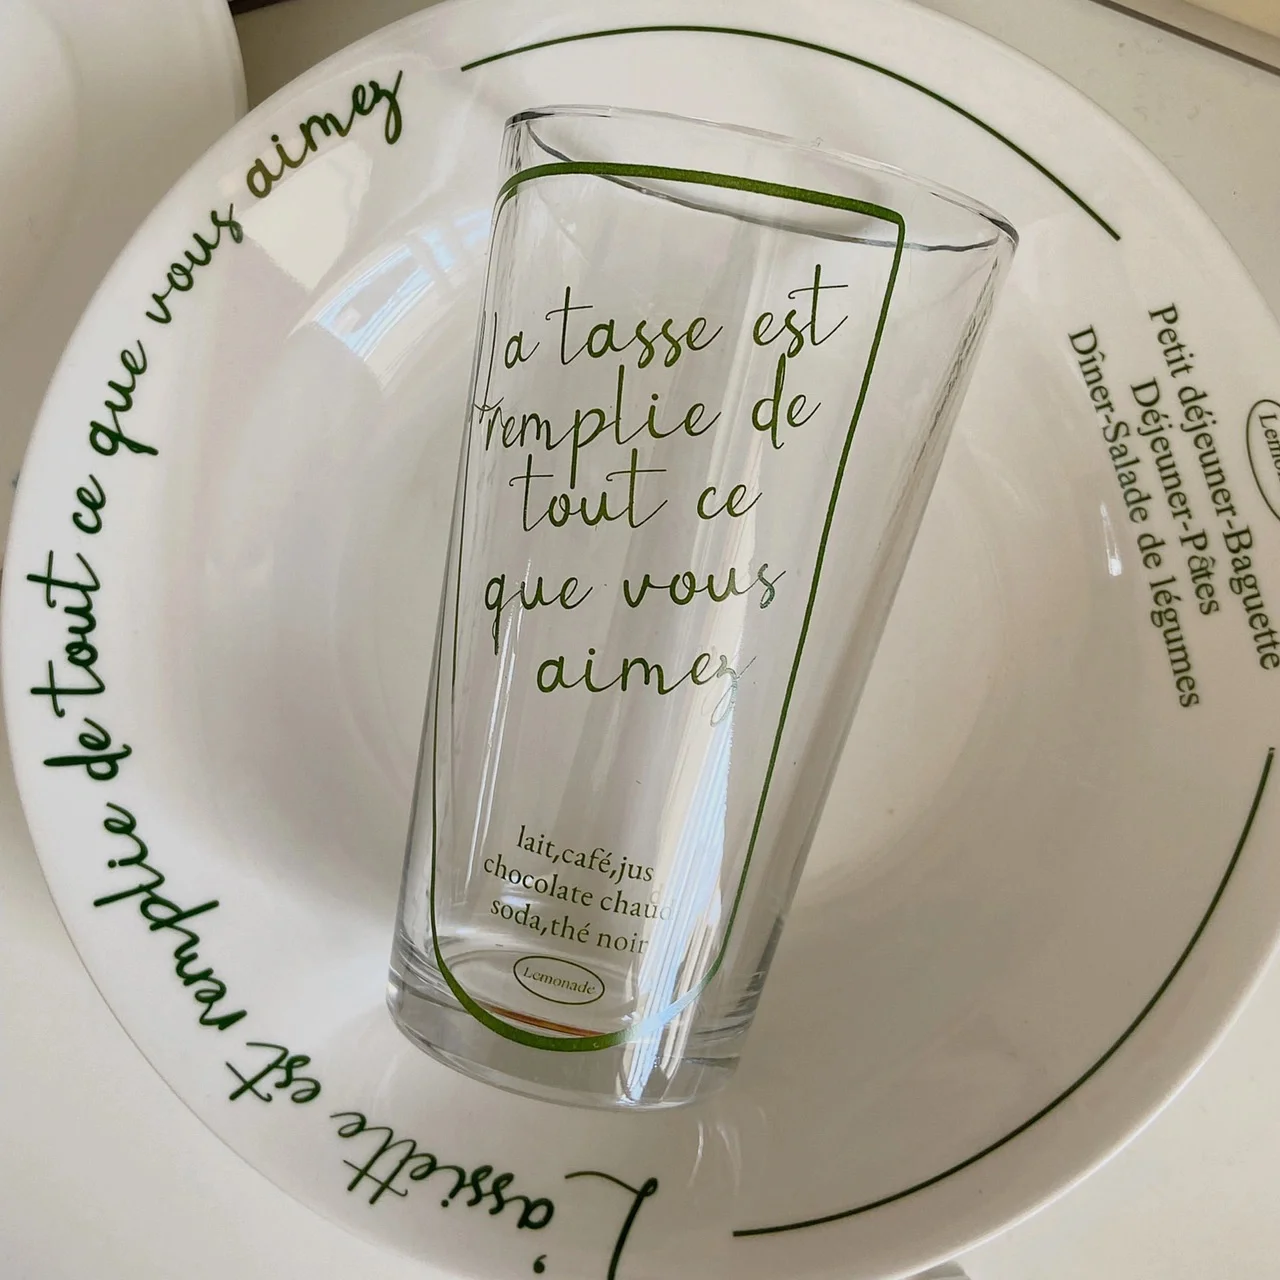 La tasse est
remplie de
tout ce
que vous
aimez
lait,café,jus
chocolate chaud
soda,thé noir
Lemonade
L'assiette est remplie de tout ce que vous aimez
Petit déjeuner-Baguette
Déjeuner-Pâtes
Dîner-Salade de légumes